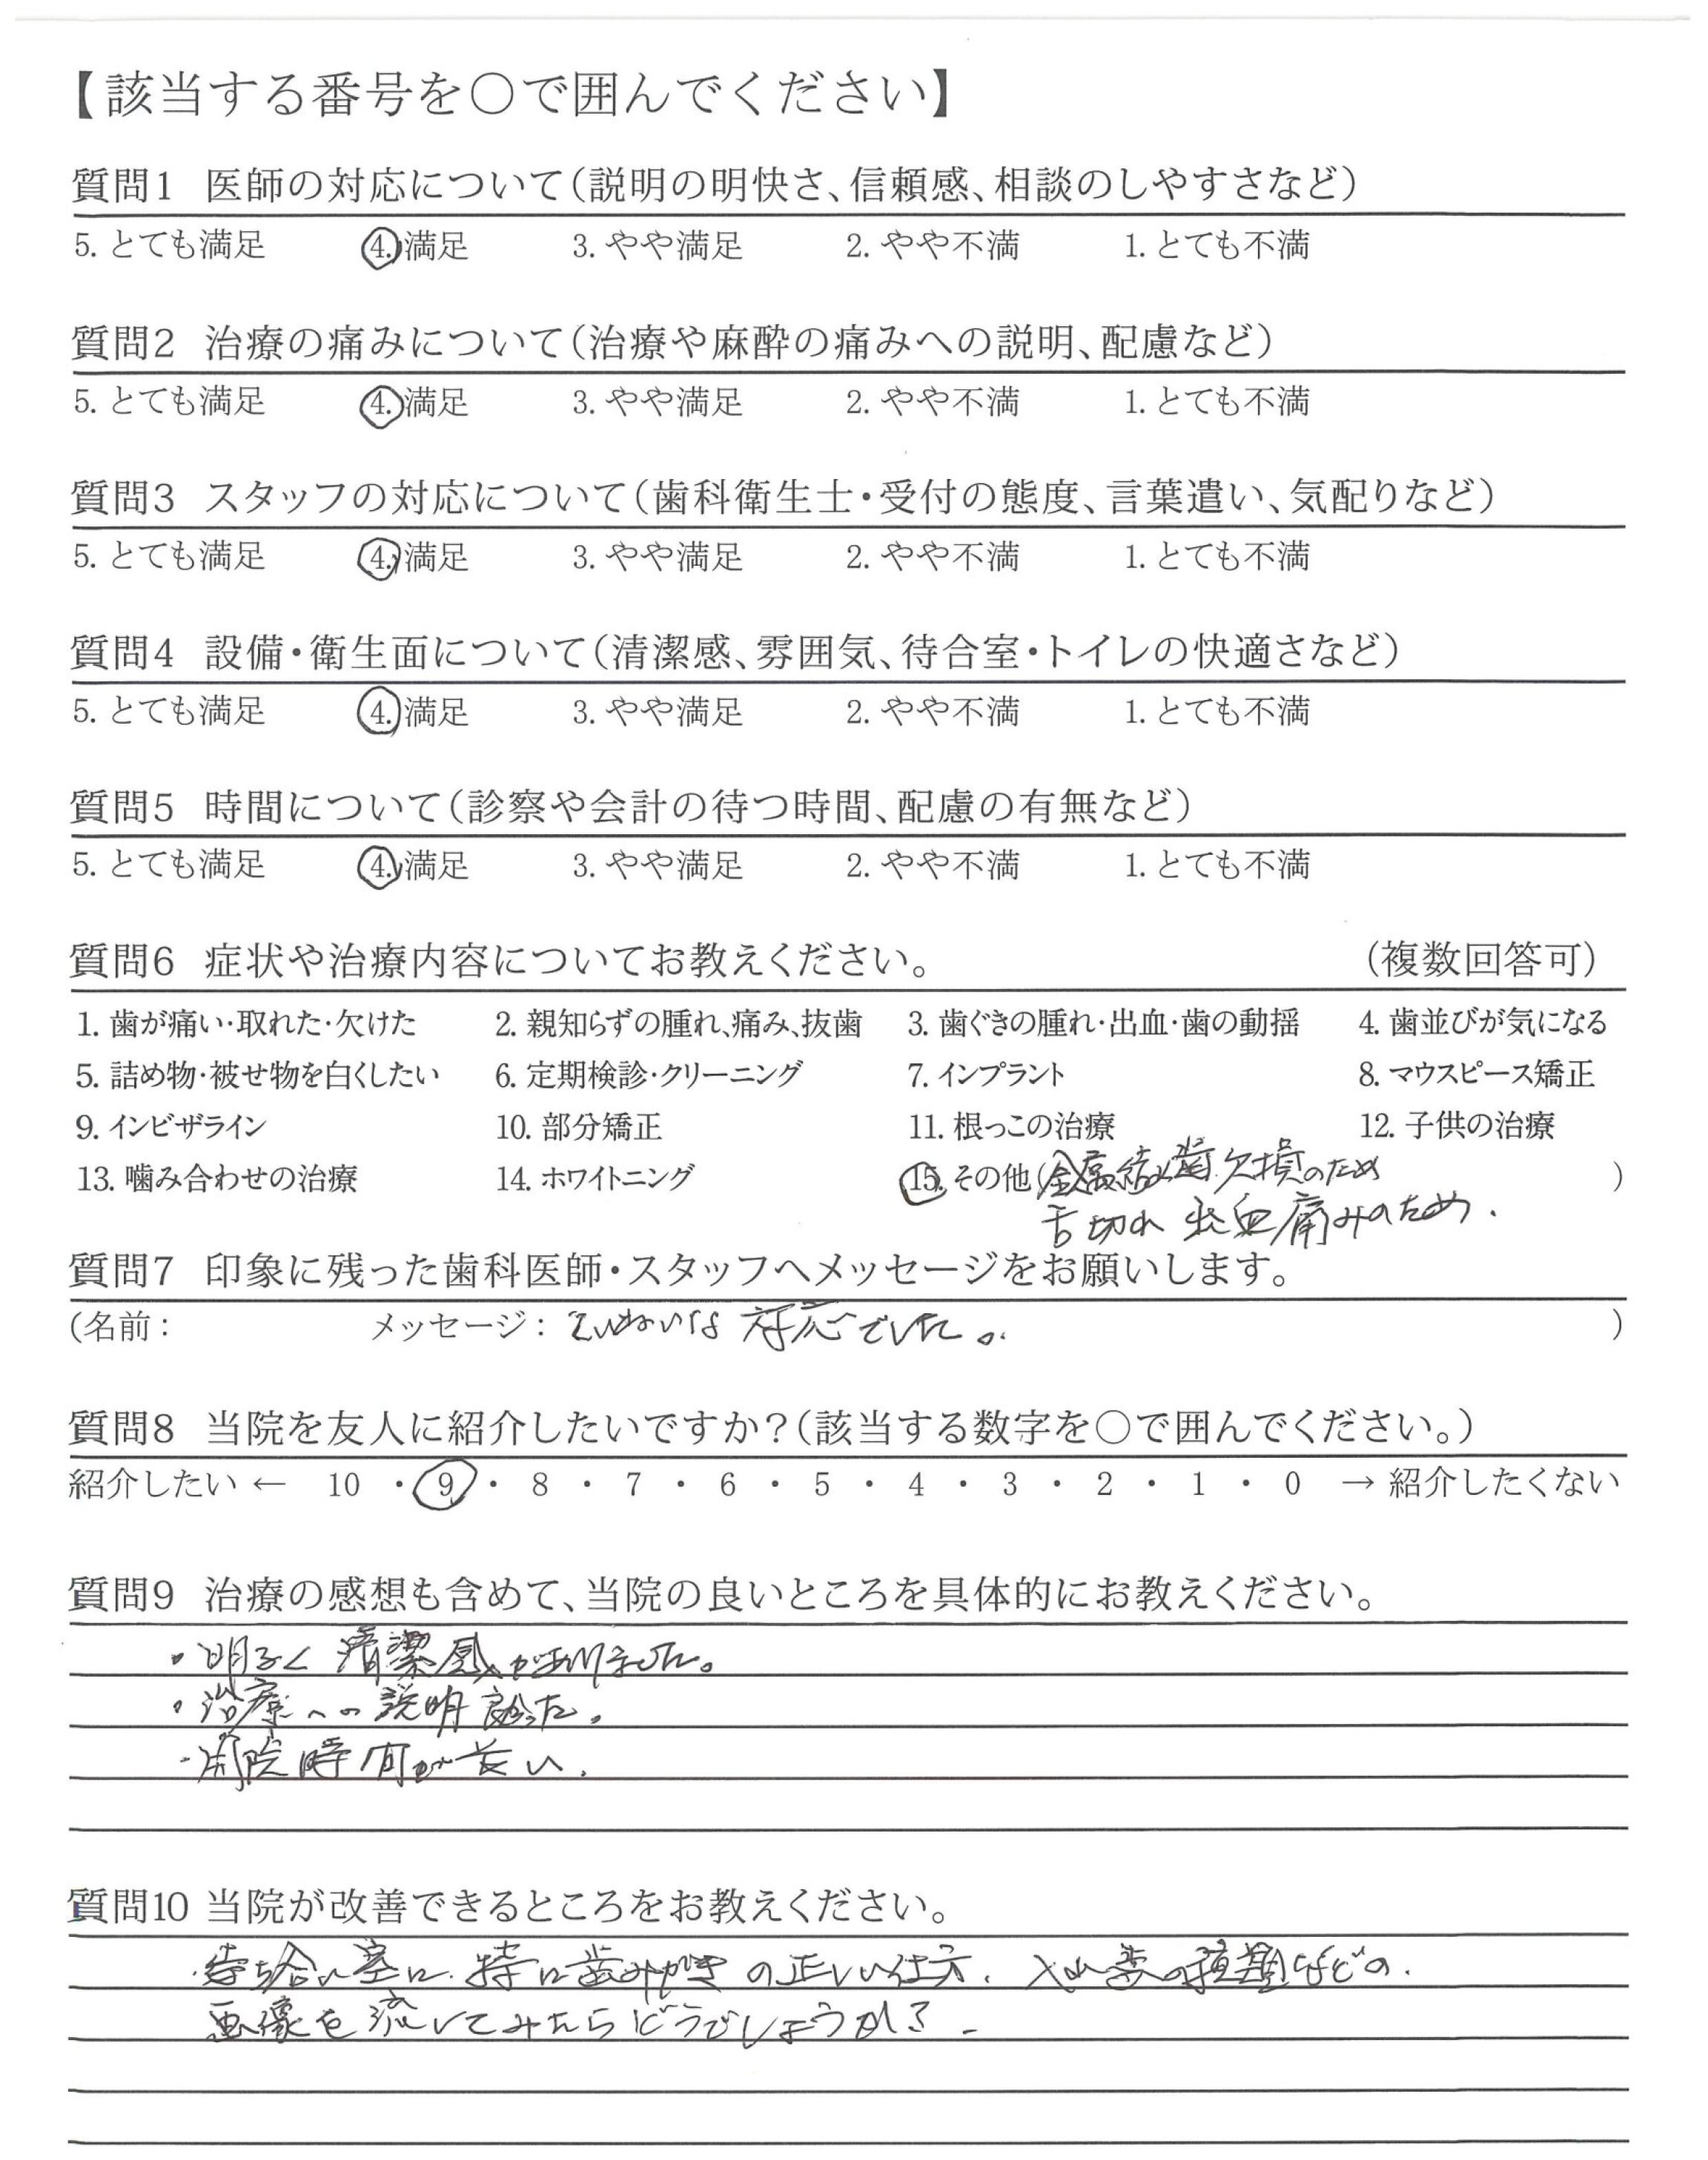 【該当する番号を○で囲んでください】
質問1 医師の対応について(説明の明快さ、信頼感、相談のしやすさなど)
5. とても満足 4. 満足 3. やや満足 2. やや不満 1. とても不満
質問2 治療の痛みについて(治療や麻酔の痛みへの説明、配慮など)
5. とても満足 4. 満足 3. やや満足 2. やや不満 1. とても不満
質問3 スタッフの対応について(歯科衛生士・受付の態度、言葉遣い、気配りなど)
5. とても満足 4. 満足 3. やや満足 2. やや不満 1. とても不満
質問4 設備・衛生面について(清潔感、雰囲気、待合室・トイレの快適さなど)
5. とても満足 4. 満足 3. やや満足 2. やや不満 1. とても不満
質問5 時間について(診察や会計の待つ時間、配慮の有無など)
5. とても満足 4. 満足 3. やや満足 2. やや不満 1. とても不満
質問6 症状や治療内容についてお教えください。 (複数回答可)
1. 歯が痛い・取れた・欠けた 2. 親知らずの腫れ、痛み、抜歯 3. 歯ぐきの腫れ・出血・歯の動揺 4. 歯並びが気になる
5. 詰め物・被せ物を白くしたい 6. 定期検診・クリーニング 7. インプラント 8. マウスピース矯正
9. インビザライン 10. 部分矯正 11. 根っこの治療 12. 子供の治療
13. 噛み合わせの治療 14. ホワイトニング 15. その他(歯欠損のため )
舌切れ 出血痛みのため.
質問7 印象に残った歯科医師・スタッフへメッセージをお願いします。
(名前: メッセージ: ていねいな対応でした。 )
質問8 当院を友人に紹介したいですか?(該当する数字を○で囲んでください。)
紹介したい ← 10 ・ 9 ・ 8 ・ 7 ・ 6 ・ 5 ・ 4 ・ 3 ・ 2 ・ 1 ・ 0 → 紹介したくない
質問9 治療の感想も含めて、当院の良いところを具体的にお教えください。
・明るく清潔感がありました。
・治療への説明良かった。
・開院時間が長い.
質問10 当院が改善できるところをお教えください。
・待ち合い室に、特に歯みがきの正しい仕方、入れ歯の種類などの.
画像を流してみたらどうでしょうか?